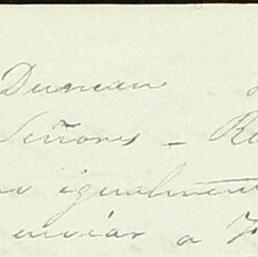 Duncan
Señores - Re
igualment
enviar a